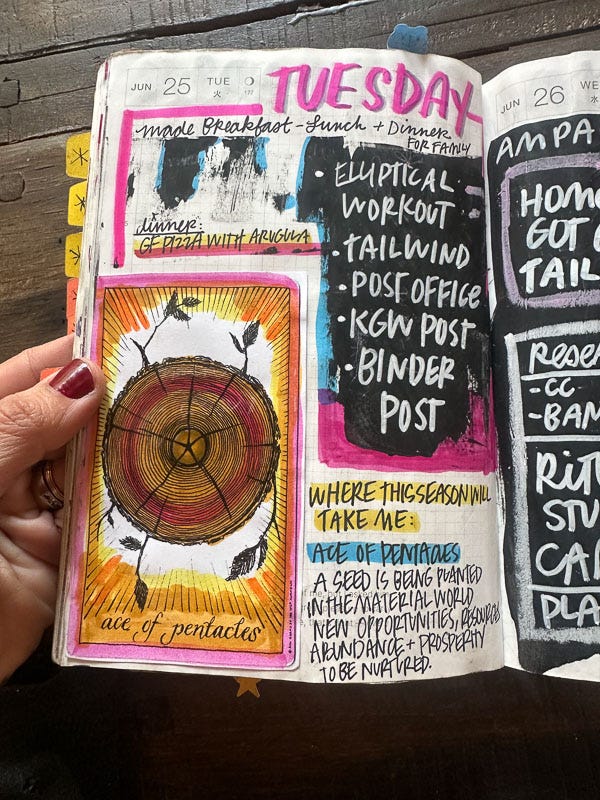 JUN 25 TUE
火
TUESDAY
made Breakfast - Lunch + Dinner
FOR FAMILY
dinner:
GF PIZZA WITH ARUGULA
• ELLIPTICAL
WORKOUT
• TAILWIND
• POST OFFICE
• KGW POST
• BINDER
POST
ace of pentacles
WHERE THIS SEASON WILL
TAKE ME:
ACE OF PENTACLES
A SEED IS BEING PLANTED
IN THE MATERIAL WORLD
NEW OPPORTUNITIES, RESOURCES
ABUNDANCE + PROSPERITY
TO BE NURTURED.
JUN 26 WE
水
AMPA
HOM
GOT
TAIL
Rese
-CC
-BAN
RIT
STU
CA
PLA